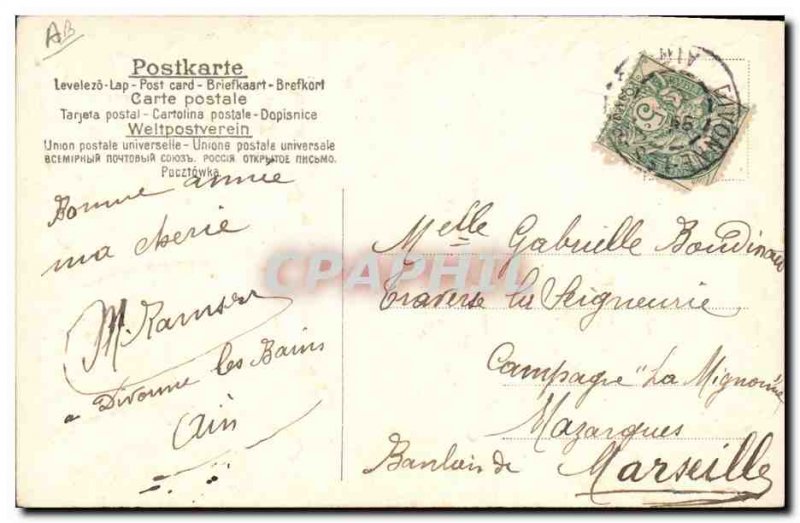 AB
Postkarte
Levelezö-Lap - Post card - Briefkaart - Brefkort
Carte postale
Tarjeta postal - Cartolina postale - Dopisnice
Weltpostverein
Union postale universelle - Unione postale universale
ВСЕМІРНЫЙ ПОЧТОВЫЙ СОЮЗЪ. РОССІЯ. ОТКРЫТОЕ ПИСЬМО.
Pocztówka.
Bonne année
ma cherie
M. Ramser
a Divonne les Bains
Ain
CPAPHIL
DIVONNE-LES
AIN
5
Melle Gabrielle Boudinau
Traverse la Seigneurie
Campagne "La Mignonne
Mazargues
Banlieu de Marseille